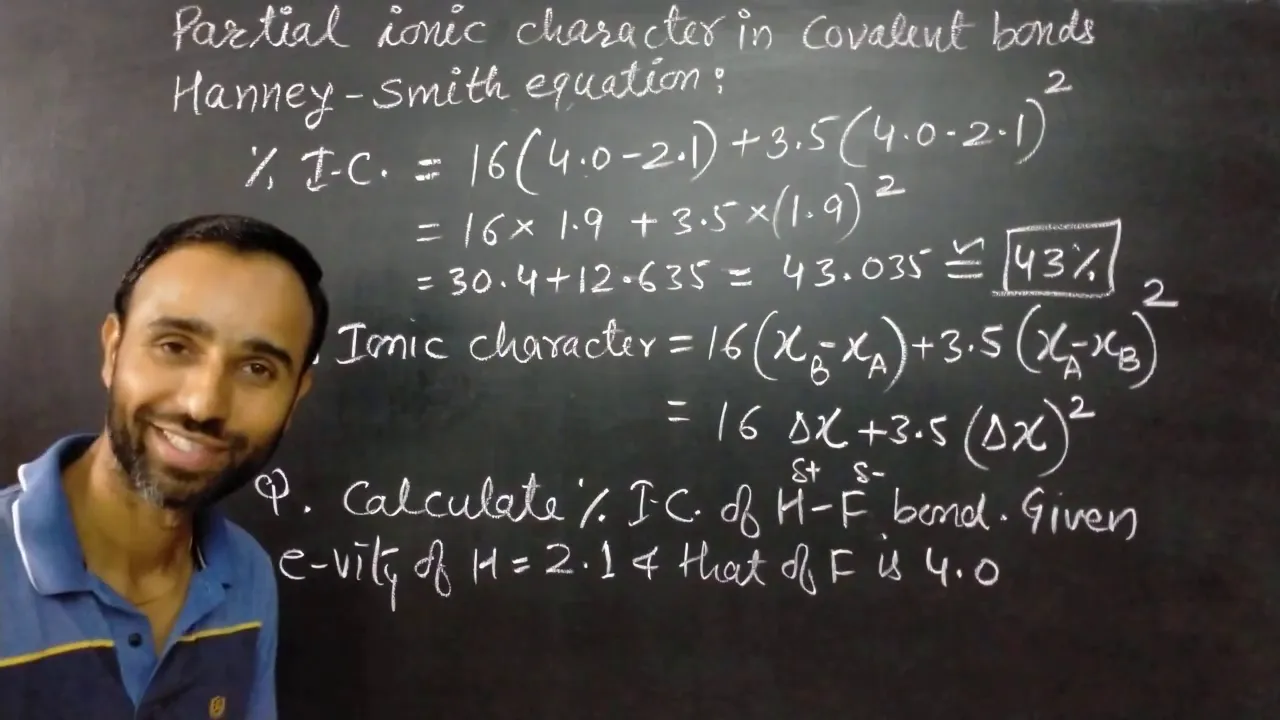 Partial ionic character in Covalent bonds
Hanney-Smith equation:
% I.C. = 16(4.0-2.1)+3.5(4.0-2.1)²
= 16 × 1.9 + 3.5×(1.9)²
= 30.4+12.635 = 43.035 ≌ 43%
. Ionic character = 16(x_B-x_A)+3.5(x_A-x_B)²
= 16 Δx+3.5(Δx)²
δ+ δ-
Q. Calculate % I.C. of H-F bond. Given
e-vity of H=2.1 & that of F is 4.0